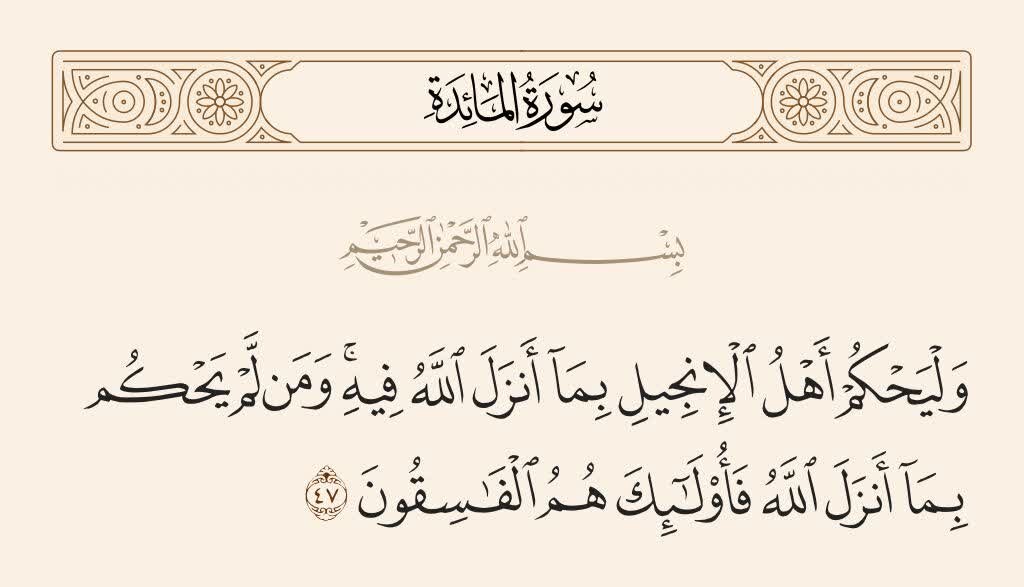 سُورَةُ المَائِدَةِ
بِسْمِ اللَّهِ الرَّحْمَٰنِ الرَّحِيمِ
وَلْيَحْكُمْ أَهْلُ ٱلْإِنجِيلِ بِمَآ أَنزَلَ ٱللَّهُ فِيهِۚ وَمَن لَّمْ يَحْكُم
بِمَآ أَنزَلَ ٱللَّهُ فَأُو۟لَـٰٓئِكَ هُمُ ٱلْفَـٰسِقُونَ ٤٧